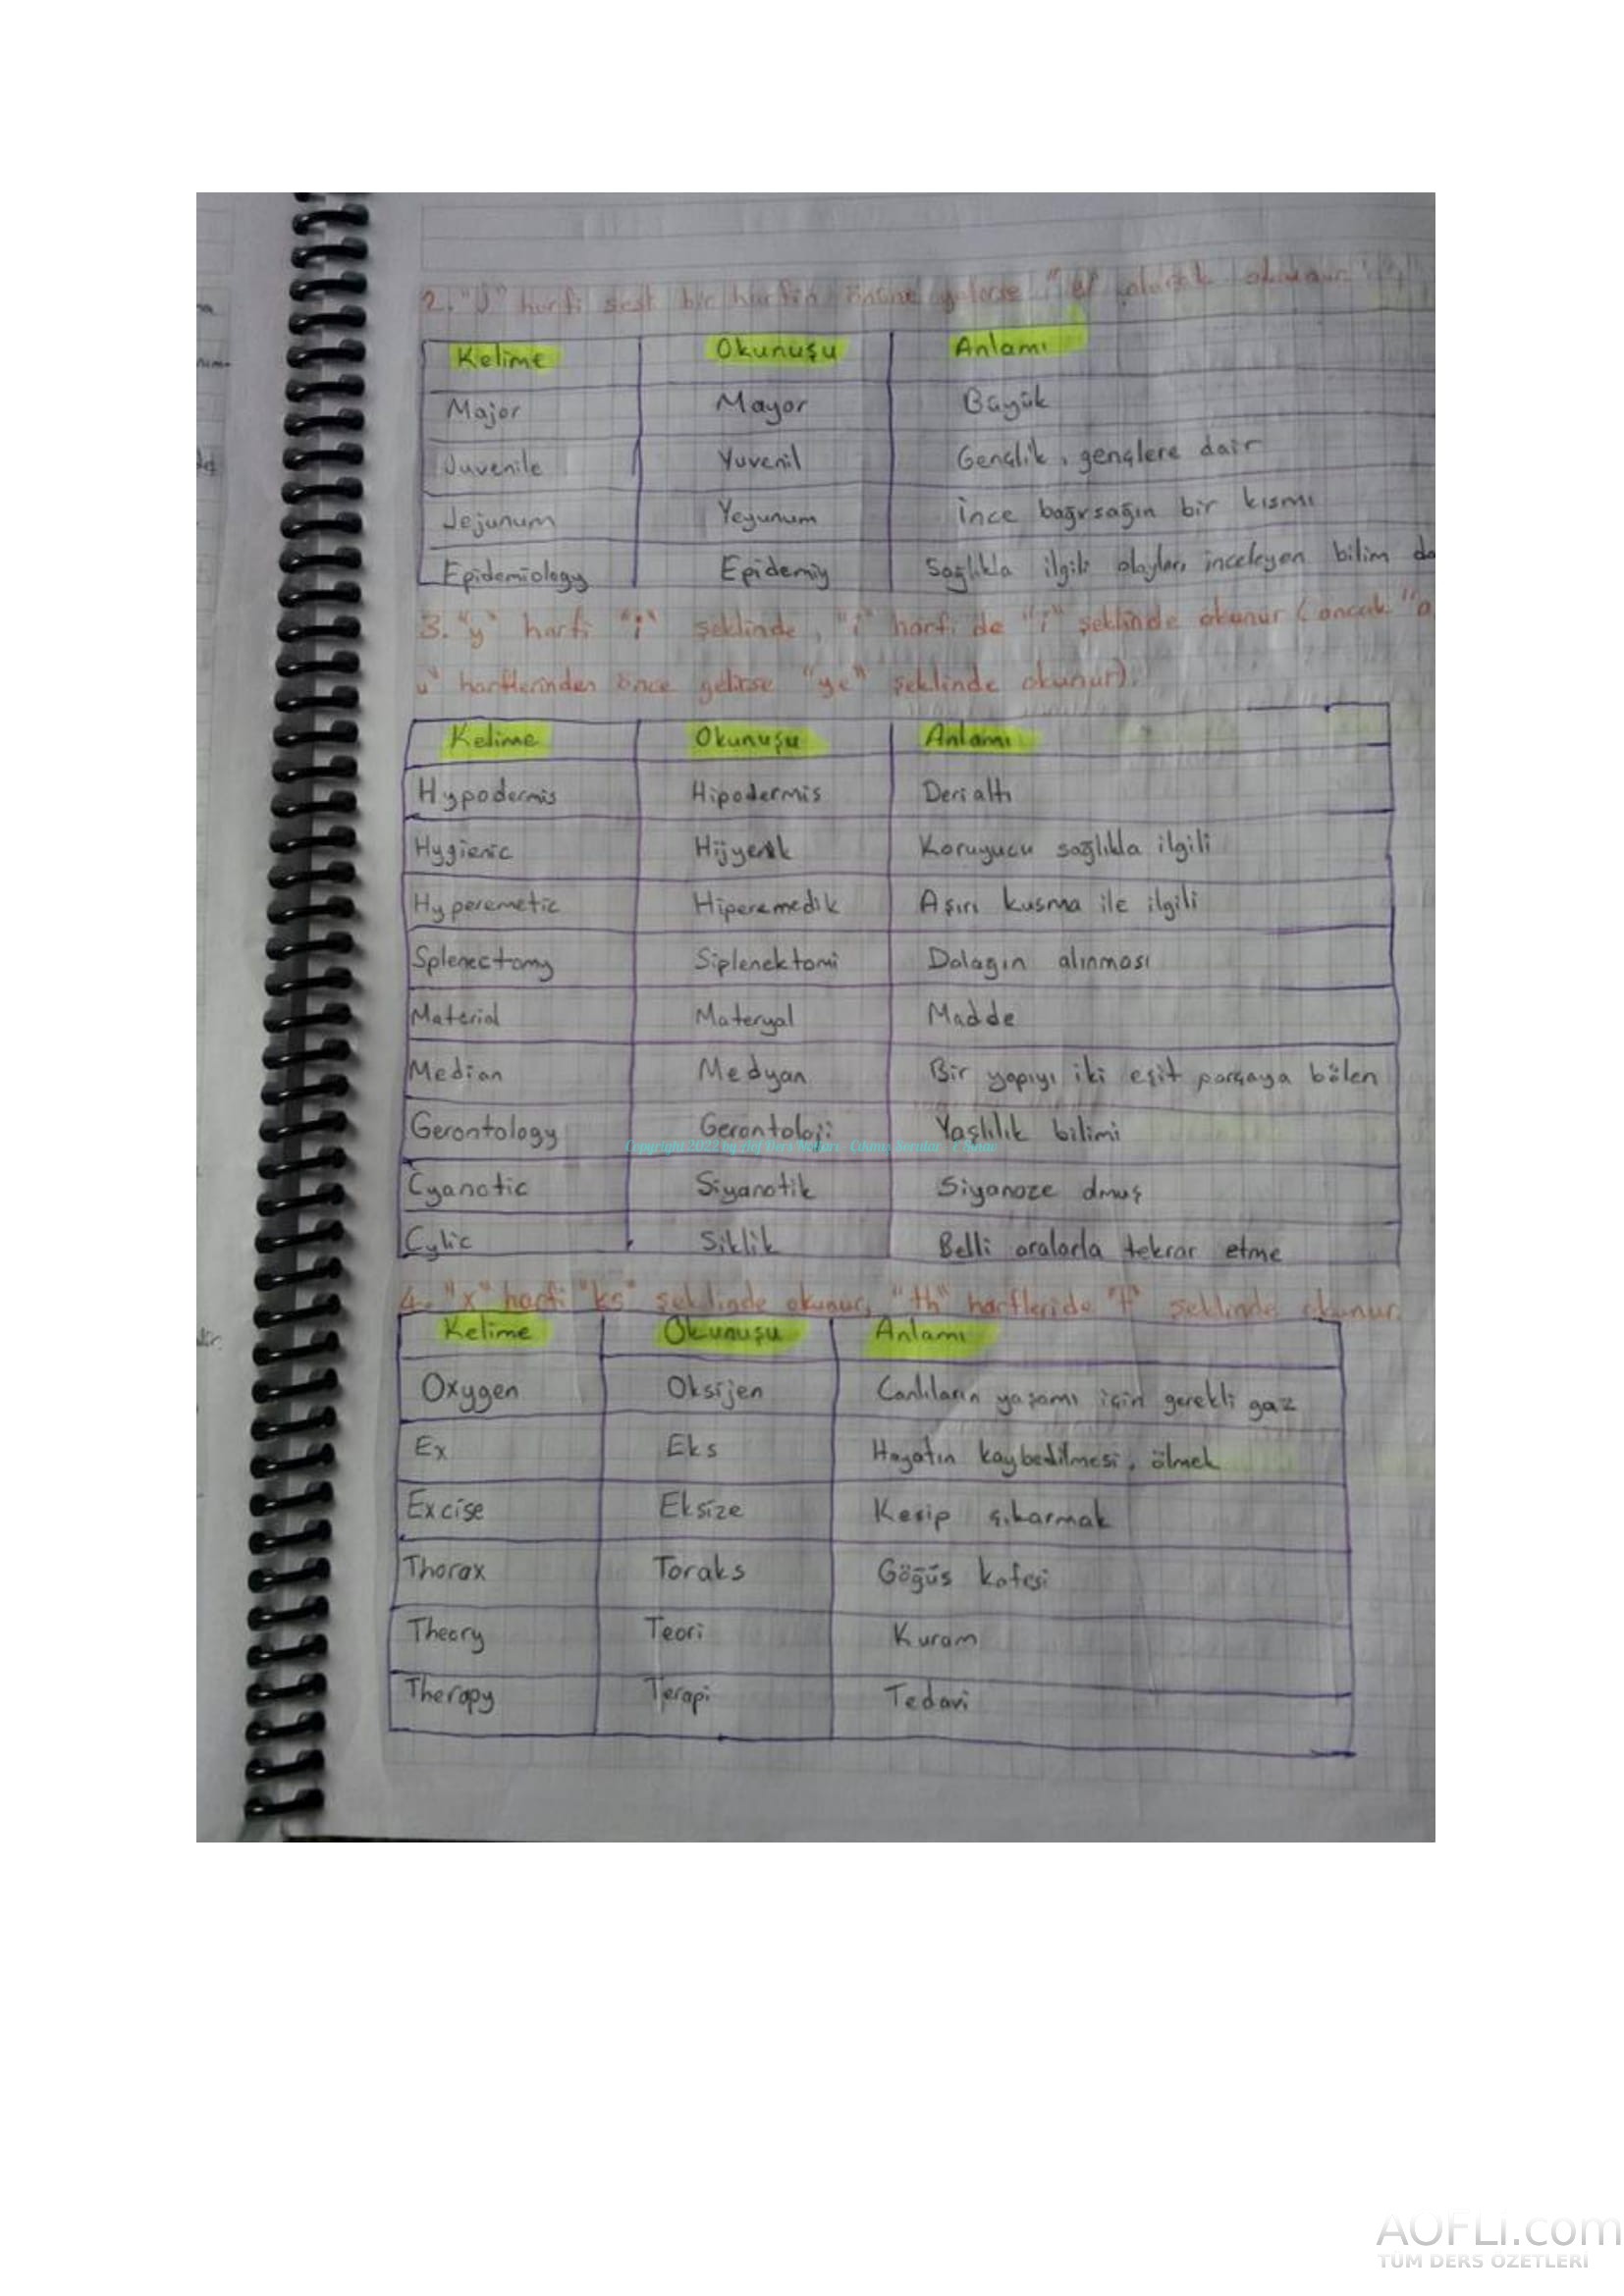 2. "J" harfi sesli bir harfin önüne gelirse olarak okunur.
Kelime Okunuşu Anlamı
Major Mayor Büyük
Juvenile Yuvenil Gençlik, gençlere dair
Jejunum Yeyunum İnce bağırsağın bir kısmı
Epidemiology Epidemiy Sağlıkla ilgili olayları inceleyen bilim da
3. "y" harfi "i" şeklinde, "i" harfi de "i" şeklinde okunur (ancak "a,
u" harflerinden önce gelirse "ye" şeklinde okunur).
Kelime Okunuşu Anlamı
Hypodermis Hipodermis Deri altı
Hygienic Hijyenik Koruyucu sağlıkla ilgili
Hyperemetic Hiperemedik Aşırı kusma ile ilgili
Splenectomy Siplenektomi Dalağın alınması
Material Materyal Madde
Median Medyan Bir yapıyı iki eşit parçaya bölen
Gerontology Gerontoloji Yaşlılık bilimi
Copyright 2022 by Aöf Ders Notları - Çıkmış Sorular -
Cyanotic Siyanotik Siyanoze olmuş
Cylic Siklik Belli aralarla tekrar etme
4. "x" harfi "ks" şeklinde okunur, "th" harfleride "t" şeklinde okunur.
Kelime Okunuşu Anlamı
Oxygen Oksijen Canlıların yaşamı için gerekli gaz
Ex Eks Hayatın kaybedilmesi, ölmek
Excise Eksize Kesip çıkarmak
Thorax Toraks Göğüs kafesi
Theory Teori Kuram
Therapy Terapi Tedavi
AOFLI.com
TÜM DERS ÖZETLERİ